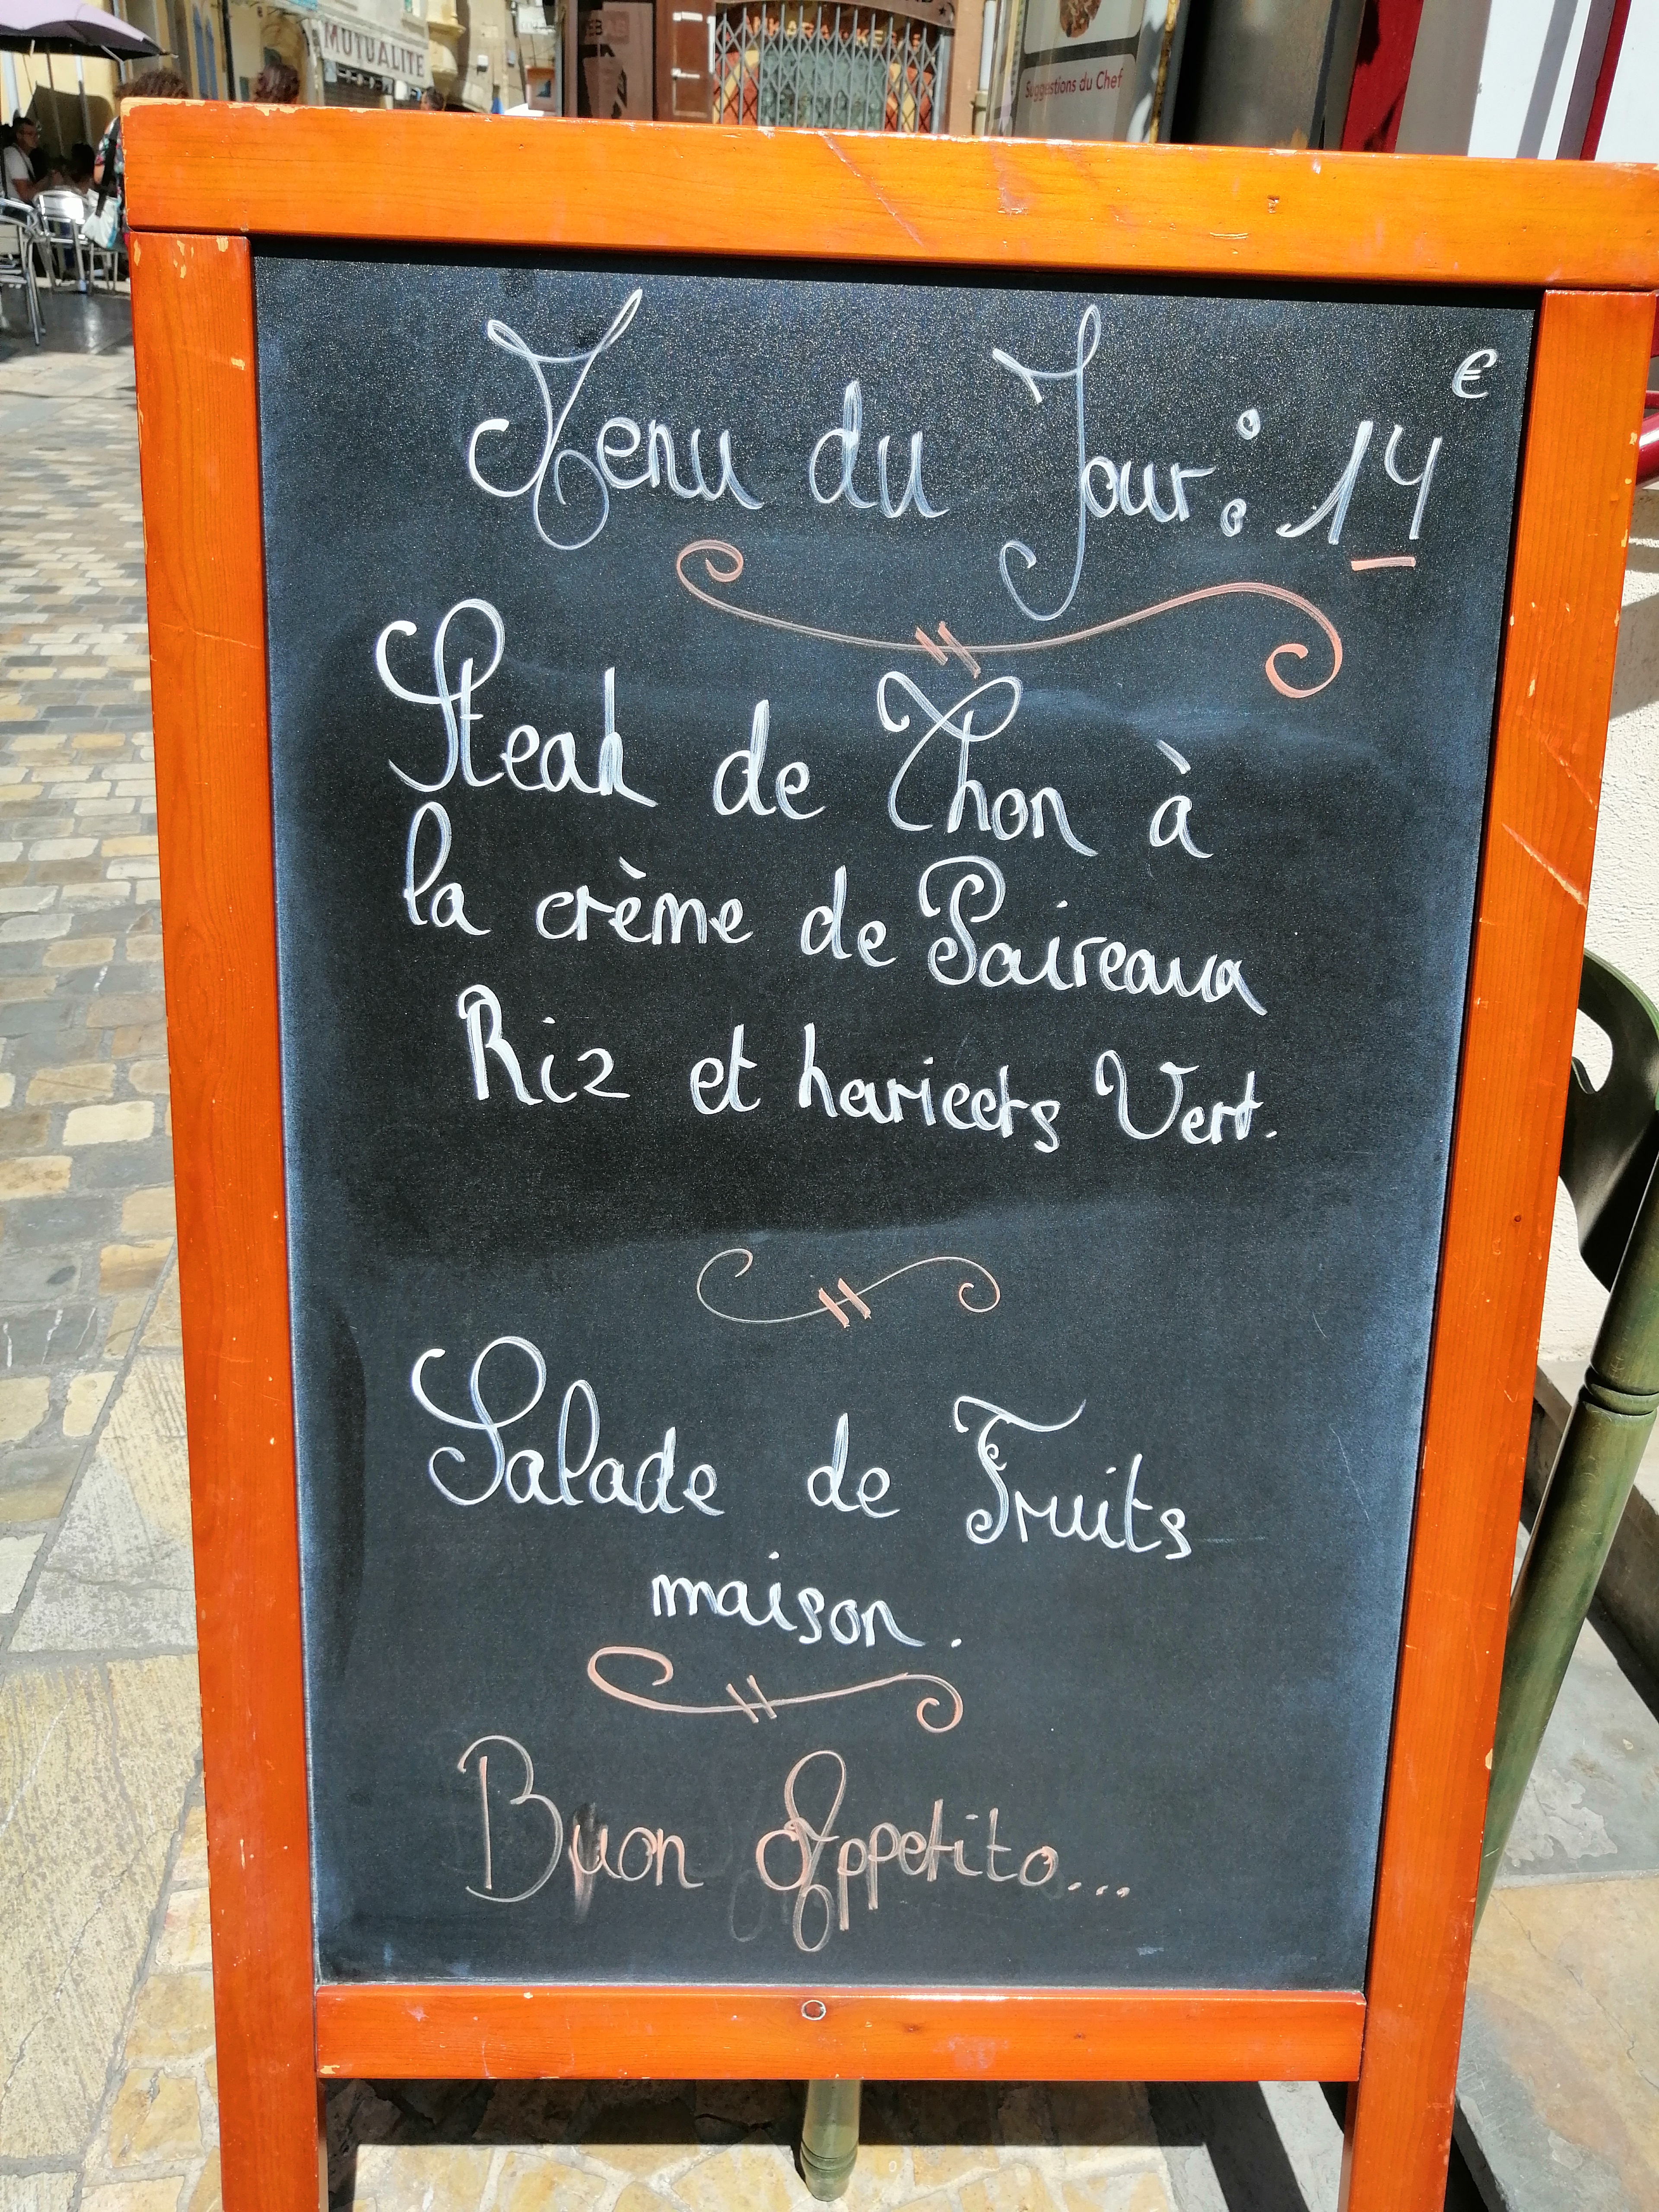 MUTUALITE
Suggestions du Chef
Menu du Jour : 14 €
Steak de Thon à
la crème de Paireaux
Riz et haricots Vert.
Salade de Fruits
maison.
Buon Appetito...